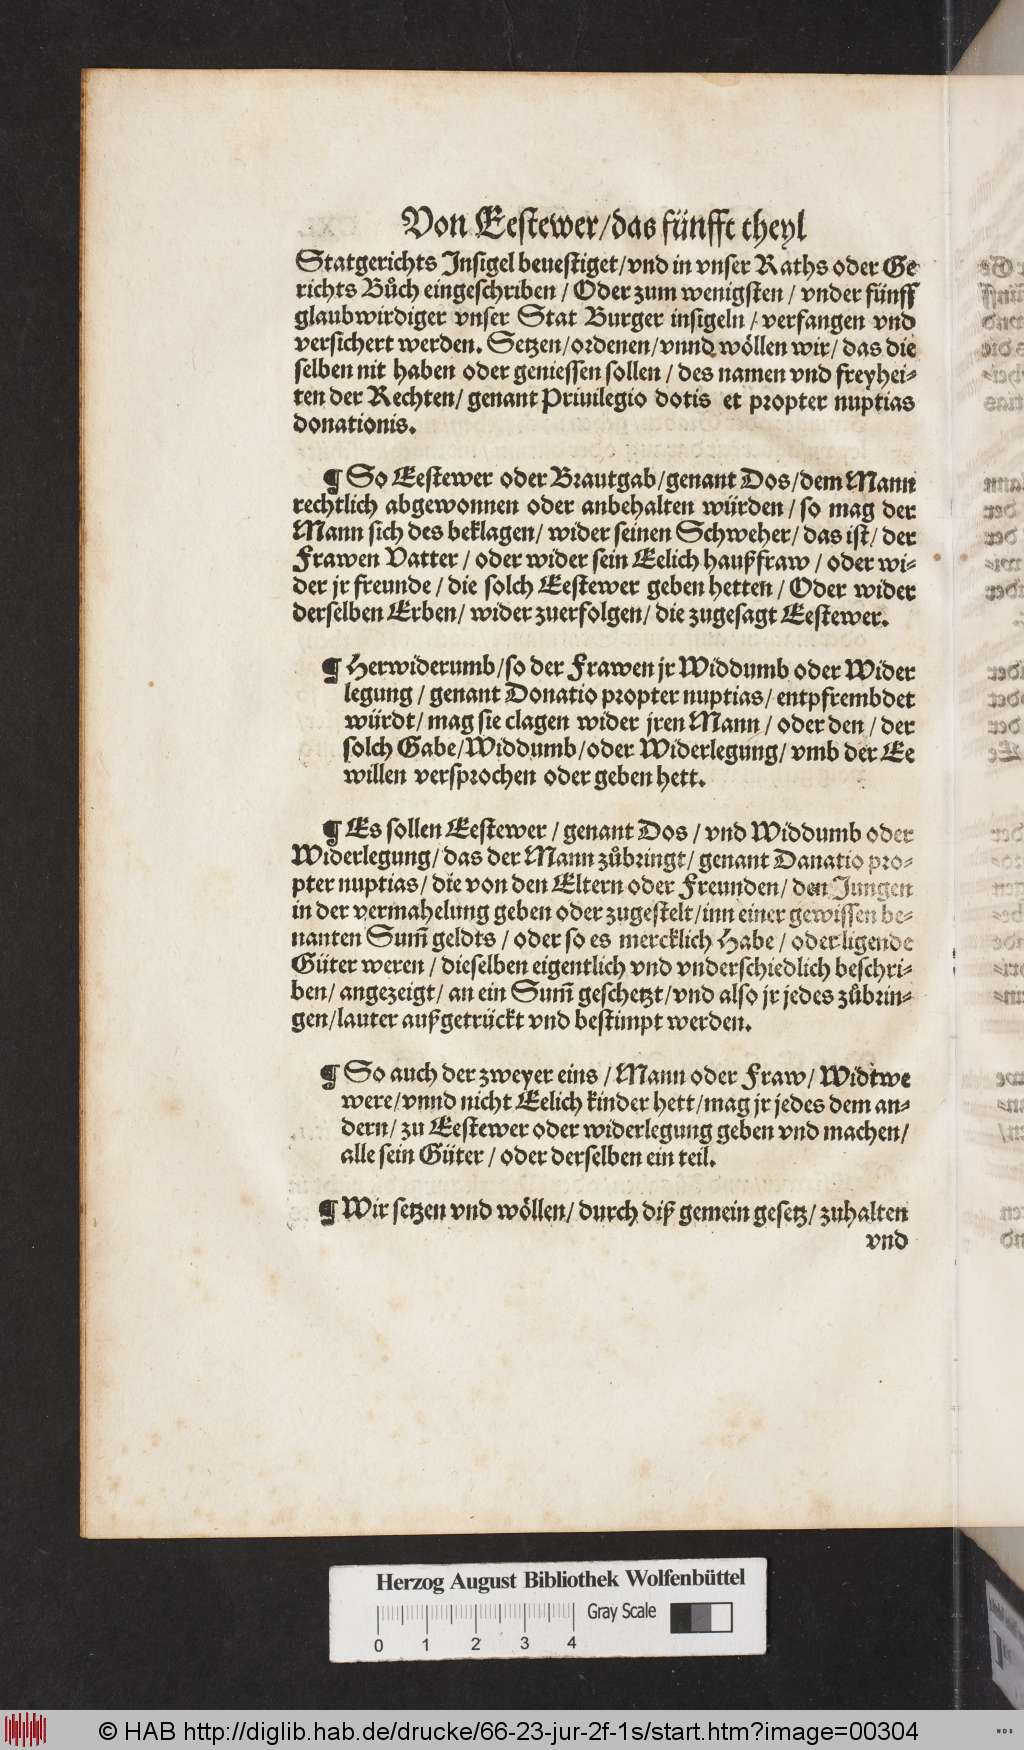 Von Eestewer/das fünfft theyl
Statgerichts Insigel beuestiget/vnd in vnser Raths oder Ge
richts Bůch eingeschriben / Oder zum wenigsten / vnder fünff
glaubwirdiger vnser Stat Burger insigeln / verfangen vnd
versichert werden. Setzen/ordenen/vnnd wöllen wir/ das die
selben nit haben oder geniessen sollen / des namen vnd freyhei-
ten der Rechten/ genant Priuilegio dotis et propter nuptias
donationis.
¶ So Eestewer oder Brautgab/genant Dos/dem Mann
rechtlich abgewonnen oder anbehalten würden / so mag der
Mann sich des beklagen/ wider seinen Schweher/ das ist/ der
Frawen Vatter / oder wider sein Eelich haußfraw / oder wi-
der jr freunde / die solch Eestewer geben hetten / Oder wider
derselben Erben/ wider zuerfolgen/ die zugesagt Eestewer.
¶ Herwiderumb/so der Frawen jr Widdumb oder Wider
legung / genant Donatio propter nuptias/ entpfrembdet
würdt/ mag sie clagen wider jren Mann / oder den / der
solch Gabe/Widdumb/oder Widerlegung/ vmb der Ee
willen versprochen oder geben hett.
¶ Es sollen Eestewer / genant Dos / vnd Widdumb oder
Widerlegung/ das der Mann zůbringt/ genant Danatio pro-
pter nuptias/ die von den Eltern oder Freunden/ den Jungen
in der vermahelung geben oder zugestelt/inn einer gewissen be-
nanten Sum̃ geldts / oder so es mercklich Habe / oder ligende
Güter weren / dieselben eigentlich vnd vnderschiedlich beschri-
ben/ angezeigt/ an ein Sum̃ geschetzt/vnd also jr jedes zůbrin-
gen/lauter außgetrückt vnd bestimpt werden.
¶ So auch der zweyer eins / Mann oder Fraw/ Widtwe
were/vnnd nicht Eelich kinder hett/mag jr jedes dem an-
dern/ zu Eestewer oder widerlegung geben vnd machen/
alle sein Güter / oder derselben ein teil.
¶ Wir setzen vnd wöllen/ durch diß gemein gesetz/ zuhalten
vnd
Herzog August Bibliothek Wolfenbüttel
Gray Scale
0 1 2 3 4
© HAB http://diglib.hab.de/drucke/66-23-jur-2f-1s/start.htm?image=00304